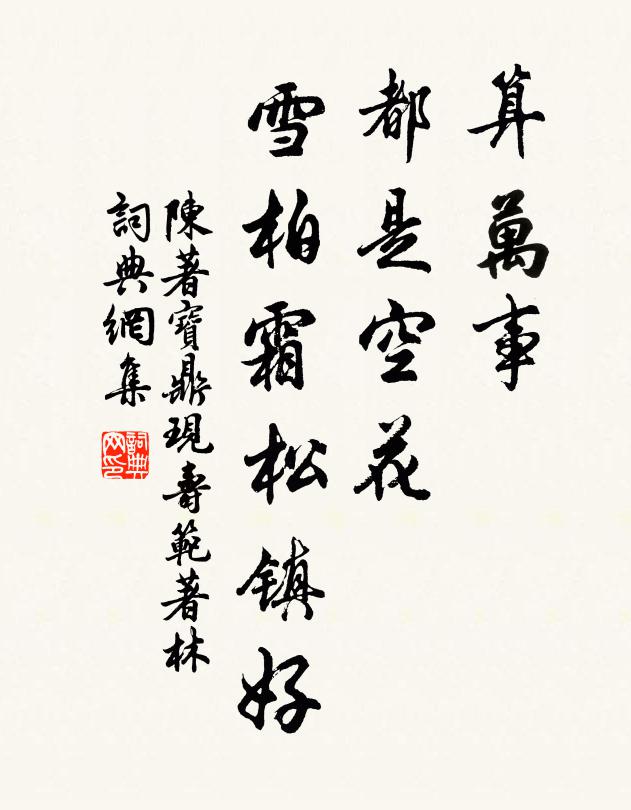 算萬事
都是空花
雪柏霜松鎮好
陳著寶鼎現壽範著林
詞典網集
詞典网印